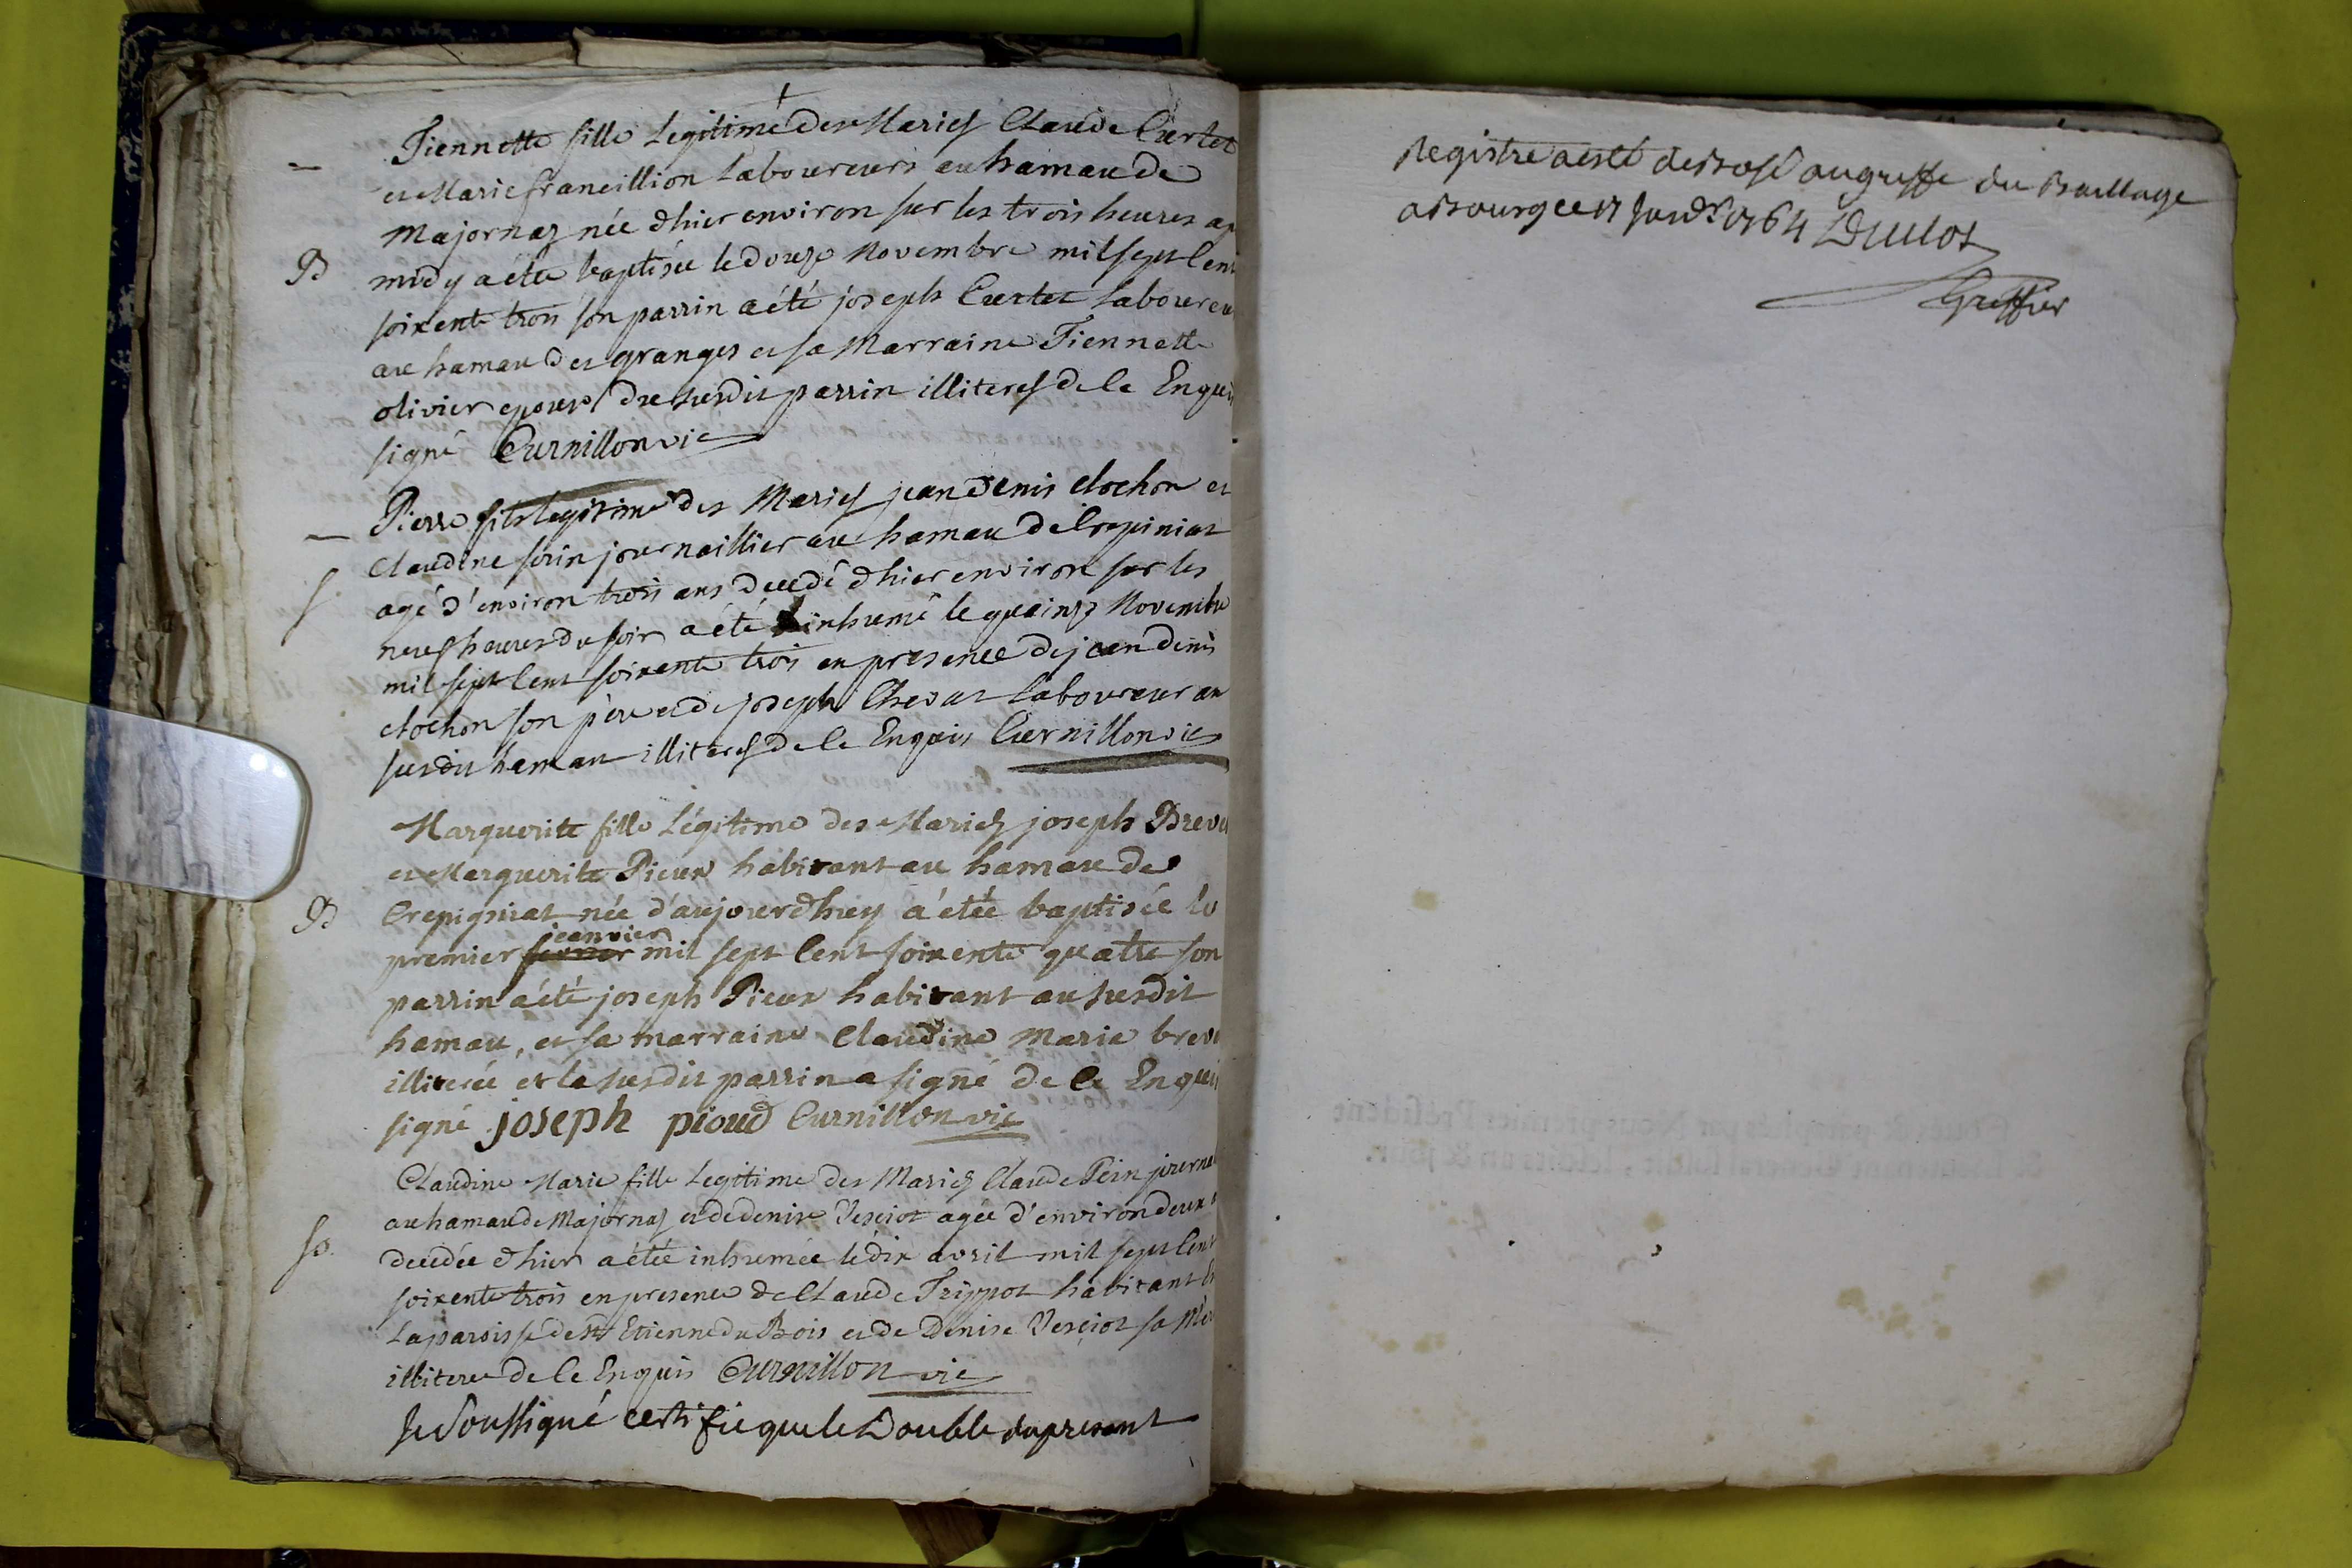 Tiennette fille Legitime des Mariés Claude Curtet
et Marie francillion Laboureurs au hamau de
Majornas née d'hier environ sur les trois heures ap
B midy a étée baptisée le douze Novembre mil sept Cent
soixente trois son parrin a été joseph Curtet Laboureur
au hamau des granges et sa Marraine Tiennette
olivier epouse du susdit parrin illiteres de ce Enquis
signé Curnillon vic
Pierre fils legitime des Mariés jean denis clochon et
Claudine serin journaillier au hamau de Crepiniat
s. agé d'environ trois ans decedé d'hier environ sur les
neuf heures du soir a été inhumé le quainze Novembre
mil sept Cent soixente trois en presence de jean denis
clochon son père et de joseph Chevat Laboureur au
susdit hamau illiteres de ce Enquis Curnillon vic
Marguerite fille Légitime des Mariés joseph Brev
et Marguerite Pieux habitant au hamau de
B Crepigniat née d'aujourdhuy a étée baptisée le
jeanvier
premier mil sept Cent soixente quatre son
parrin a été joseph Pieux habitant au susdit
hamau, et sa marraine Claudine Marie brev
illiterée et le susdit parrin a signé de ce Enquis
signé joseph pioud Curnillon vic
Claudine Marie fille Legitime des Mariés Claude Pein journa
au hamau de Majornas et de denise Vesciot agée d'environ deux
s. decedée d'hier a étée inhumée le dix avril mil sept Cent
soixente trois en presence de Claude Trippot habitant
La paroisse de st Etienne du Bois et de Denise Vesciot sa Mèr
illitere de ce Enquis Curnillon vic
Je Soussigné certifie que le Double du present
Registre a esté deposé au greffe du Baillage
a Bourg ce 17 Janvr 1764 Duclos
Greffier